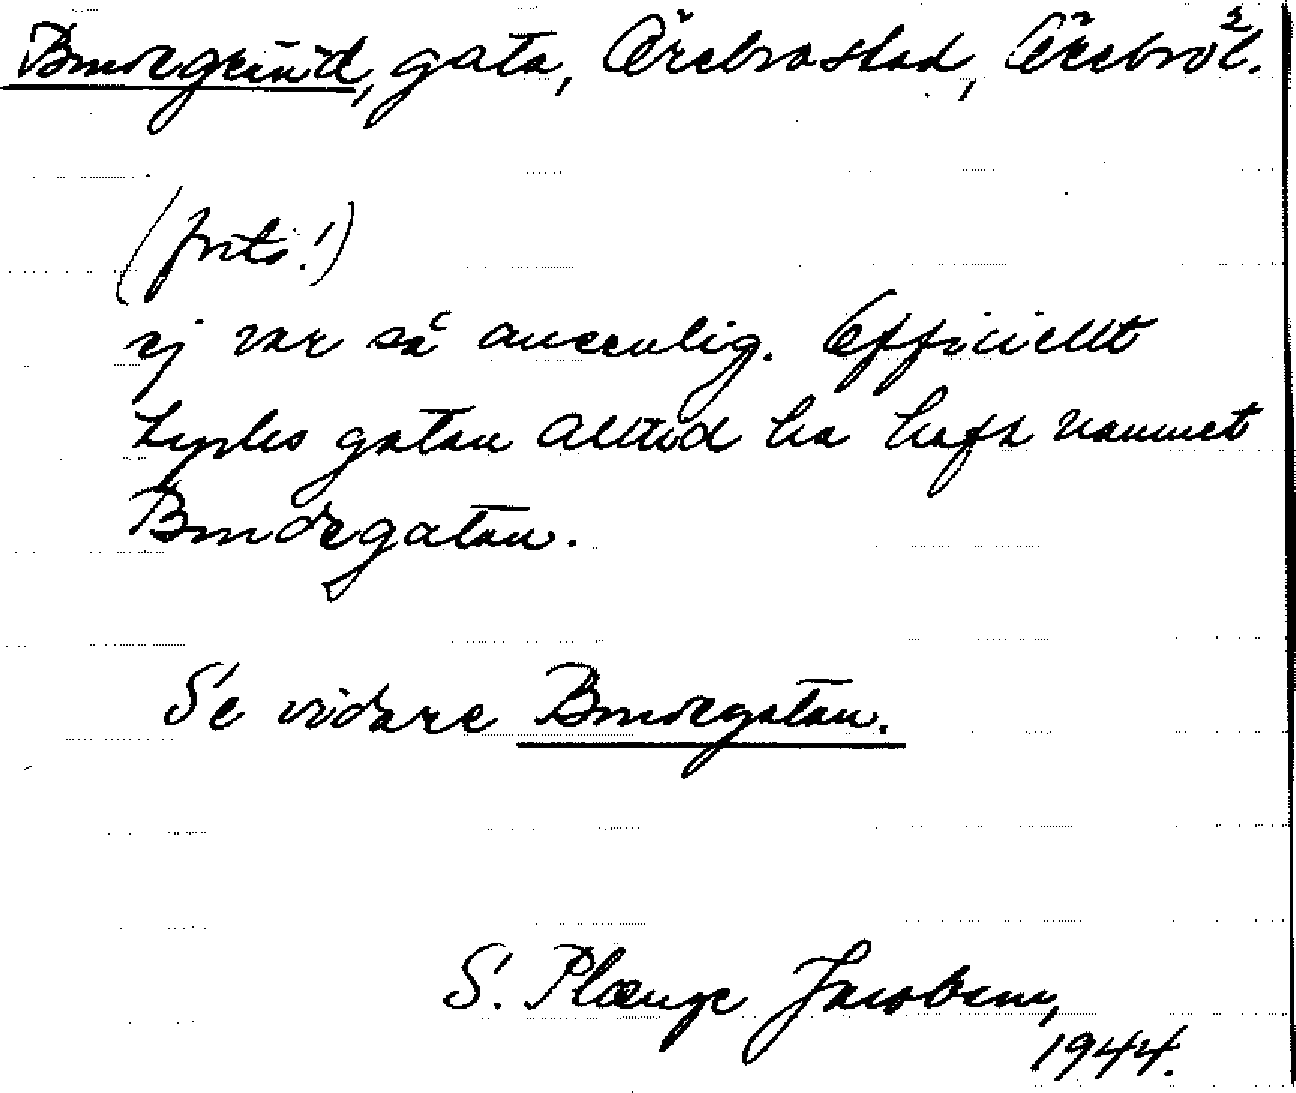 Brudegränd, gata, Örebro stad, Örebro l.
(forts.!)
ej var så ansenlig. Officiellt
tycks gatan alltid ha haft namnet
Brudegatan.
Se vidare Brudegatan.
S. Plænge Jacobson,
1944.